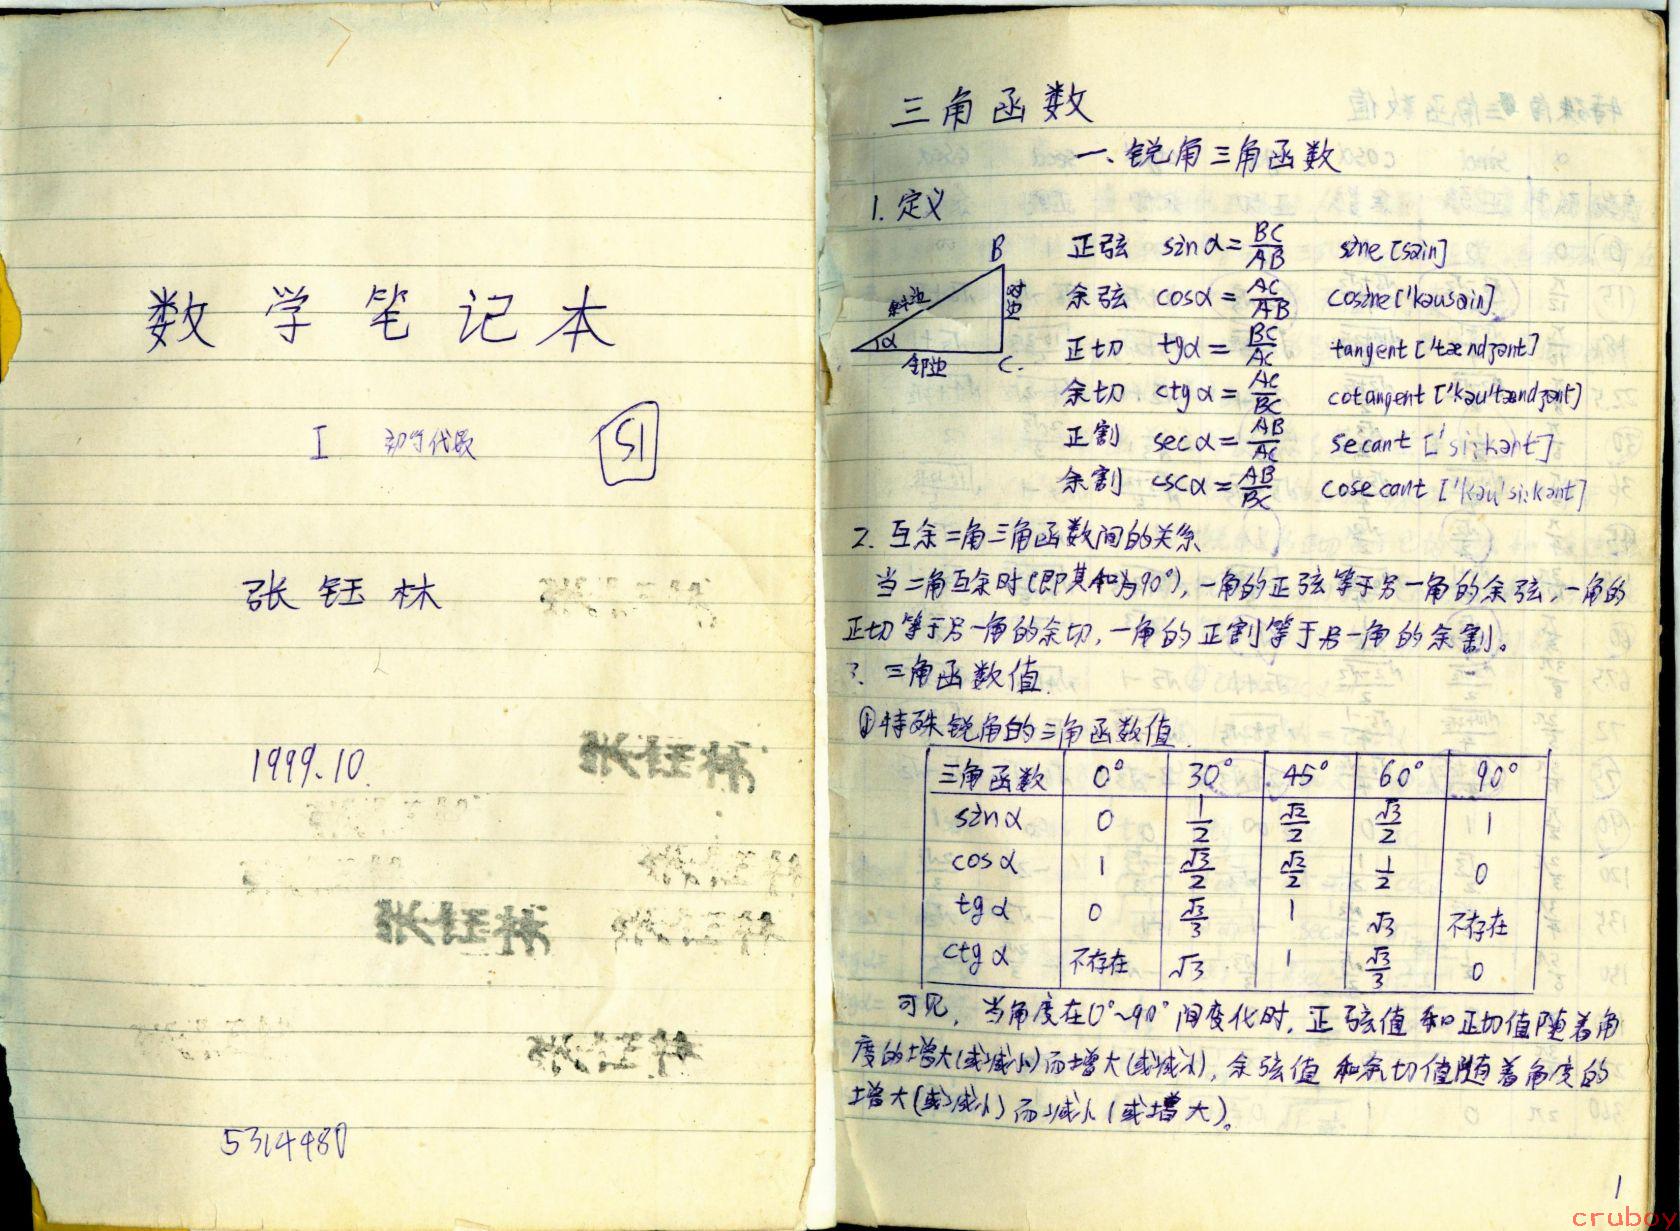 数学笔记本
I 初等代数
51
张钰林
1999.10.
张钰林
张钰林
张钰林
5314480
三角函数
一、锐角三角函数
1. 定义
B
斜边
对边
α
邻边
C
正弦 sinα = BC/AB sine [sain]
余弦 cosα = AC/AB cosine ['kəusəin]
正切 tgα = BC/AC tangent ['tændʒənt]
余切 ctgα = AC/BC cotangent ['kəu'tændʒənt]
正割 secα = AB/AC secant ['si:kənt]
余割 cscα = AB/BC cosecant ['kəu'si:kənt]
2. 互余二角三角函数间的关系
当二角互余时(即其和为90°),一角的正弦等于另一角的余弦,一角的
正切等于另一角的余切,一角的正割等于另一角的余割。
3. 三角函数值.
①特殊锐角的三角函数值.
三角函数 0° 30° 45° 60° 90°
sinα 0 1/2 √2/2 √3/2 1
cosα 1 √3/2 √2/2 1/2 0
tgα 0 √3/3 1 √3 不存在
ctgα 不存在 √3 1 √3/3 0
可见,当角度在0°~90°间变化时,正弦值和正切值随着角
度的增大(或减小)而增大(或减小),余弦值和余切值随着角度的
增大(或减小)而减小(或增大)。
1
cruboy